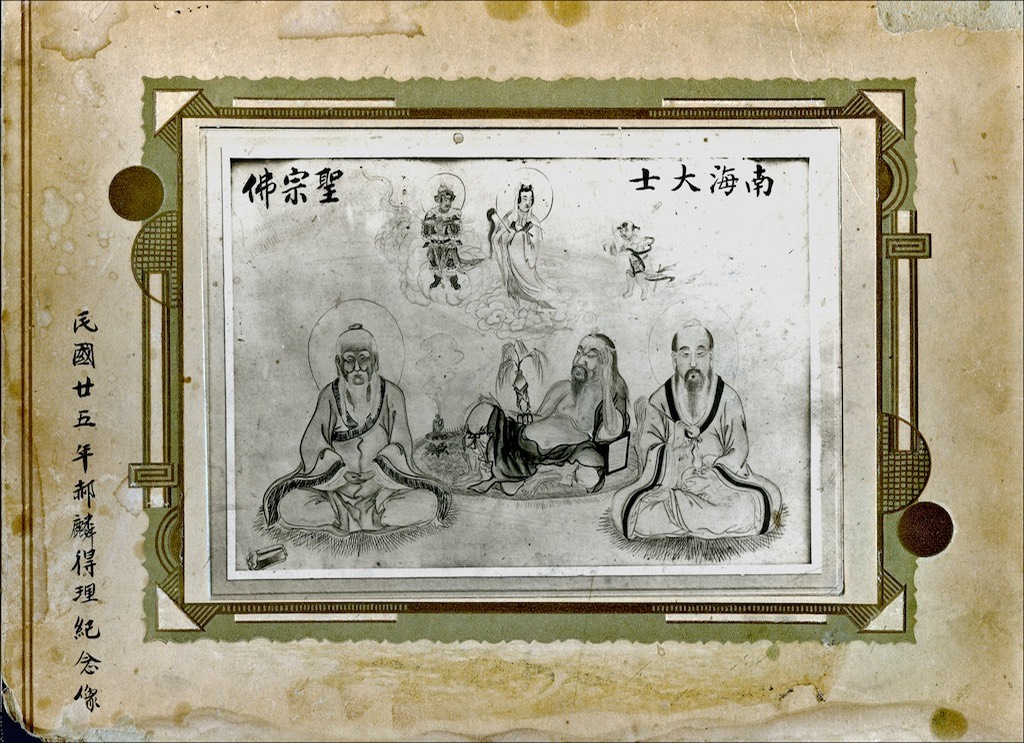 南海大士
聖宗佛
民國廿五年郝麟得理紀念像